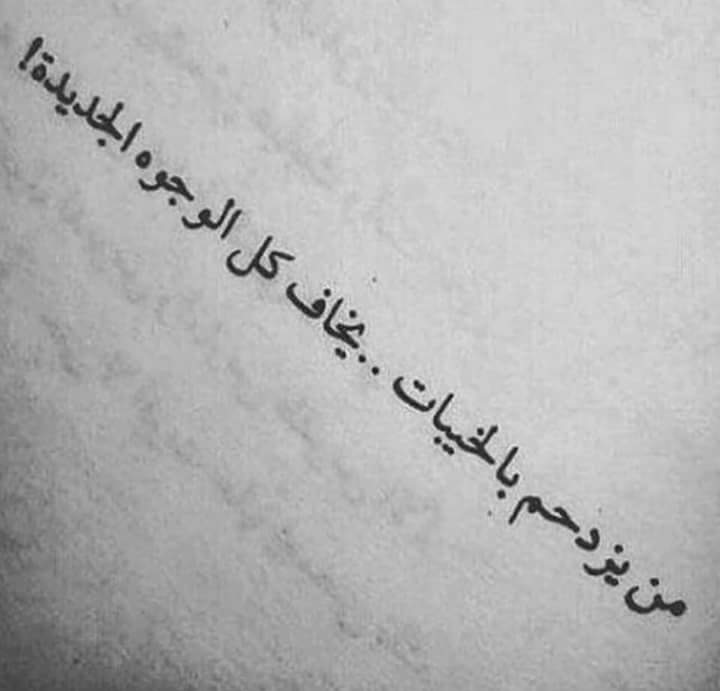 من يزدحم بالخيبات ..يخاف كل الوجوه الجديدة!